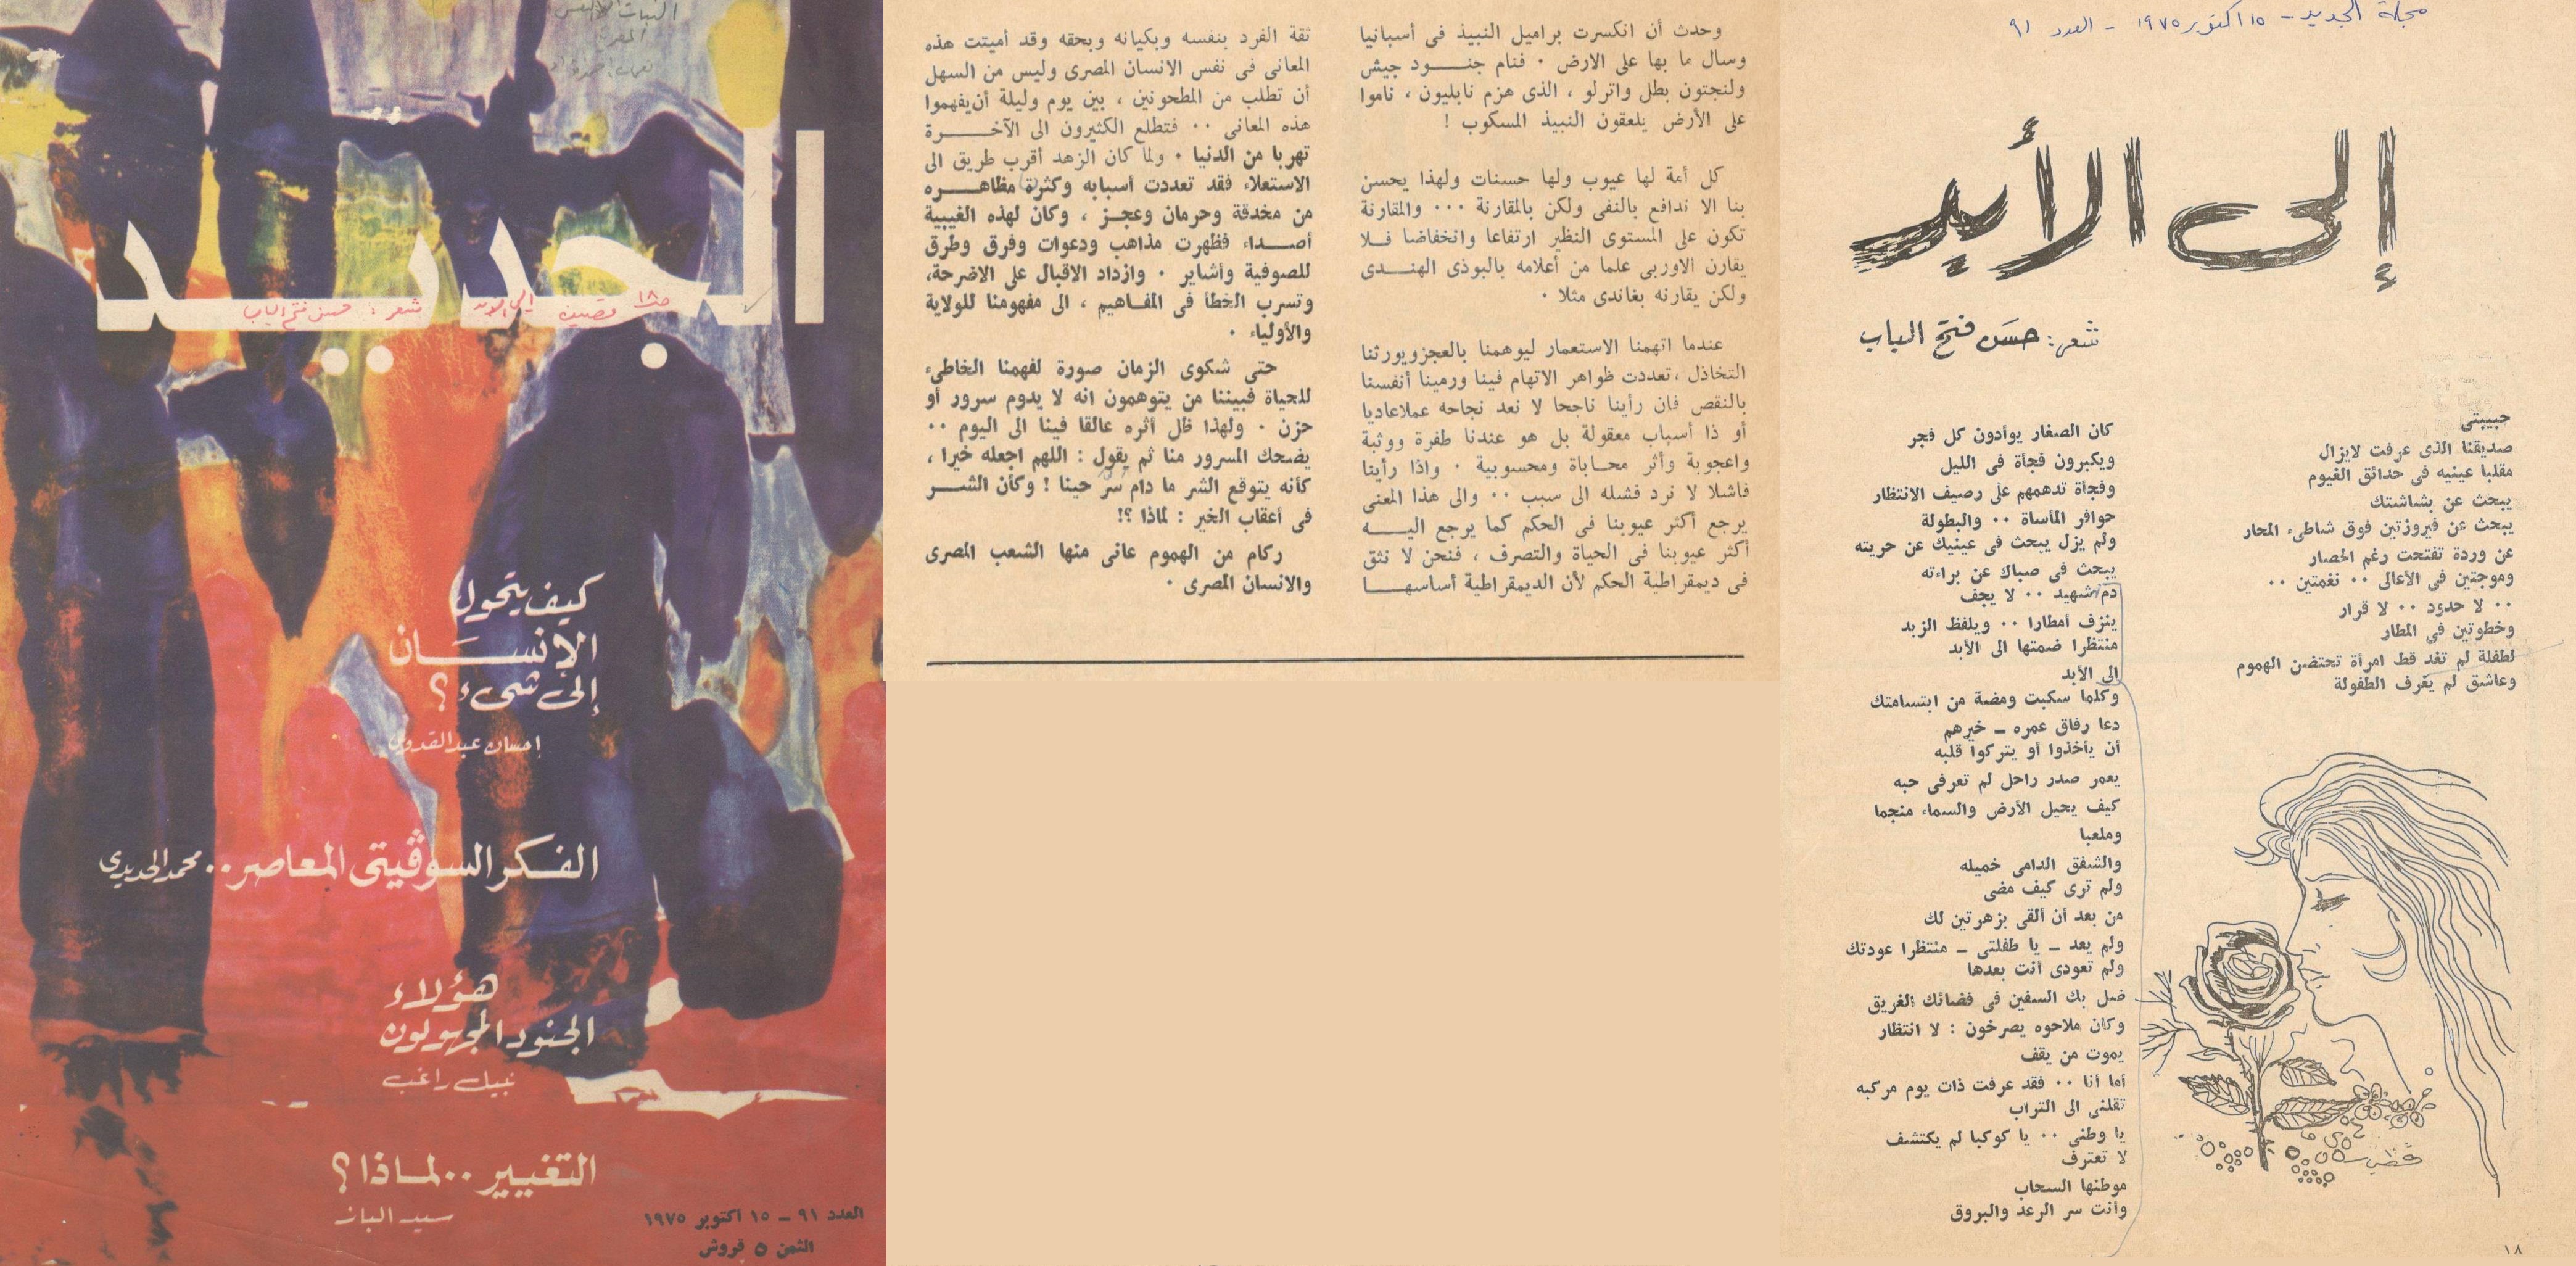 الجديد
ص ١٨ قصيدة إلى الأبد شعر : حسن فتح الباب
كيف يتحول
الإنسان
إلى شىء ؟
إحسان عبد القدوس
الفكر السوڤيتى المعاصر .. محمد الحديدى
هؤلاء
الجنود المجهولون
نبيل راغب
التغيير .. لماذا ؟
سيد الباز
العدد ٩١ – ١٥ اكتوبر ١٩٧٥
الثمن ٥ قروش
وحدث أن انكسرت براميل النبيذ فى أسبانيا
وسال ما بها على الارض . فنام جنود جيش
ولنجتون بطل واترلو ، الذى هزم نابليون ، ناموا
على الأرض يلعقون النبيذ المسكوب !
كل أمة لها عيوب ولها حسنات ولهذا يحسن
بنا الا ندافع بالنفى ولكن بالمقارنة ... والمقارنة
تكون على المستوى النظير ارتفاعا وانخفاضا فلا
يقارن الاوربى علما من أعلامه بالبوذى الهندى
ولكن يقارنه بغاندى مثلا .
عندما اتهمنا الاستعمار ليوهمنا بالعجز ويورثنا
التخاذل ، تعددت ظواهر الاتهام فينا ورمينا أنفسنا
بالنقص فان رأينا ناجحا لا نعد نجاحه عملا عاديا
أو ذا أسباب معقولة بل هو عندنا طفرة ووثبة
واعجوبة وأثر محاباة ومحسوبية . واذا رأينا
فاشلا لا نرد فشله الى سبب .. والى هذا المعنى
يرجع أكثر عيوبنا فى الحكم كما يرجع اليه
أكثر عيوبنا فى الحياة والتصرف ، فنحن لا نثق
فى ديمقراطية الحكم لأن الديمقراطية أساسها
ثقة الفرد بنفسه وبكيانه وبحقه وقد أميتت هذه
المعانى فى نفس الانسان المصرى وليس من السهل
أن تطلب من المطحونين ، بين يوم وليلة أن يفهموا
هذه المعانى .. فتطلع الكثيرون الى الآخرة
تهربا من الدنيا . ولما كان الزهد أقرب طريق الى
الاستعلاء فقد تعددت أسبابه وكثرة مظاهره
من مخدقة وحرمان وعجز ، وكان لهذه الغيبية
أصداء فظهرت مذاهب ودعوات وفرق وطرق
للصوفية وأشاير . وازداد الاقبال على الاضرحة،
وتسرب الخطأ فى المفاهيم ، الى مفهومنا للولاية
والأولياء .
حتى شكوى الزمان صورة لفهمنا الخاطىء
للحياة فبيننا من يتوهمون انه لا يدوم سرور أو
حزن . ولهذا ظل أثره عالقا فينا الى اليوم ..
يضحك المسرور منا ثم يقول : اللهم اجعله خيرا ،
كأنه يتوقع الشر ما دام سر حينا ! وكأن الشر
فى أعقاب الخير : لماذا ؟!
ركام من الهموم عانى منها الشعب المصرى
والانسان المصرى .
مجلة الجديد – ١٥ اكتوبر ١٩٧٥ – العدد ٩١
إلى الأبد
شعر : حسن فتح الباب
حبيبتى
صديقنا الذى عرفت لايزال
مقلبا عينيه فى حدائق الغيوم
يبحث عن بشاشتك
يبحث عن فيروزتين فوق شاطىء المحار
عن وردة تفتحت رغم الحصار
وموجتين فى الأعالى .. نغمتين ..
.. لا حدود .. لا قرار
وخطوتين في المطار
لطفلة لم تغد قط امرأة تحتضن الهموم
وعاشق لم يعرف الطفولة
كان الصغار يوأدون كل فجر
ويكبرون فجأة فى الليل
وفجأة تدهمهم على رصيف الانتظار
حوافر المأساة .. والبطولة
ولم يزل يبحث فى عينيك عن حريته
يبحث فى صباك عن براءته
دم شهيد .. لا يجف
ينزف أمطارا .. ويلفظ الزبد
منتظرا ضمتها الى الأبد
الى الأبد
وكلما سكبت ومضة من ابتسامتك
دعا رفاق عمره – خيرهم
أن يأخذوا أو يتركوا قلبه
يعمر صدر راحل لم تعرفى حبه
كيف يحيل الأرض والسماء منجما
وملعبا
والشفق الدامى خميله
ولم ترى كيف مضى
من بعد أن ألقى بزهرتين لك
ولم يعد – يا طفلتى – منتظرا عودتك
ولم تعودى أنت بعدها
ضل بك السفين فى فضائك الغريق
وكان ملاحوه يصرخون : لا انتظار
يموت من يقف
أما أنا .. فقد عرفت ذات يوم مركبه
تقلنى الى التراب
يا وطنى .. يا كوكبا لم يكتشف
لا تعترف
موطنها السحاب
وأنت سر الرعد والبروق
١٨